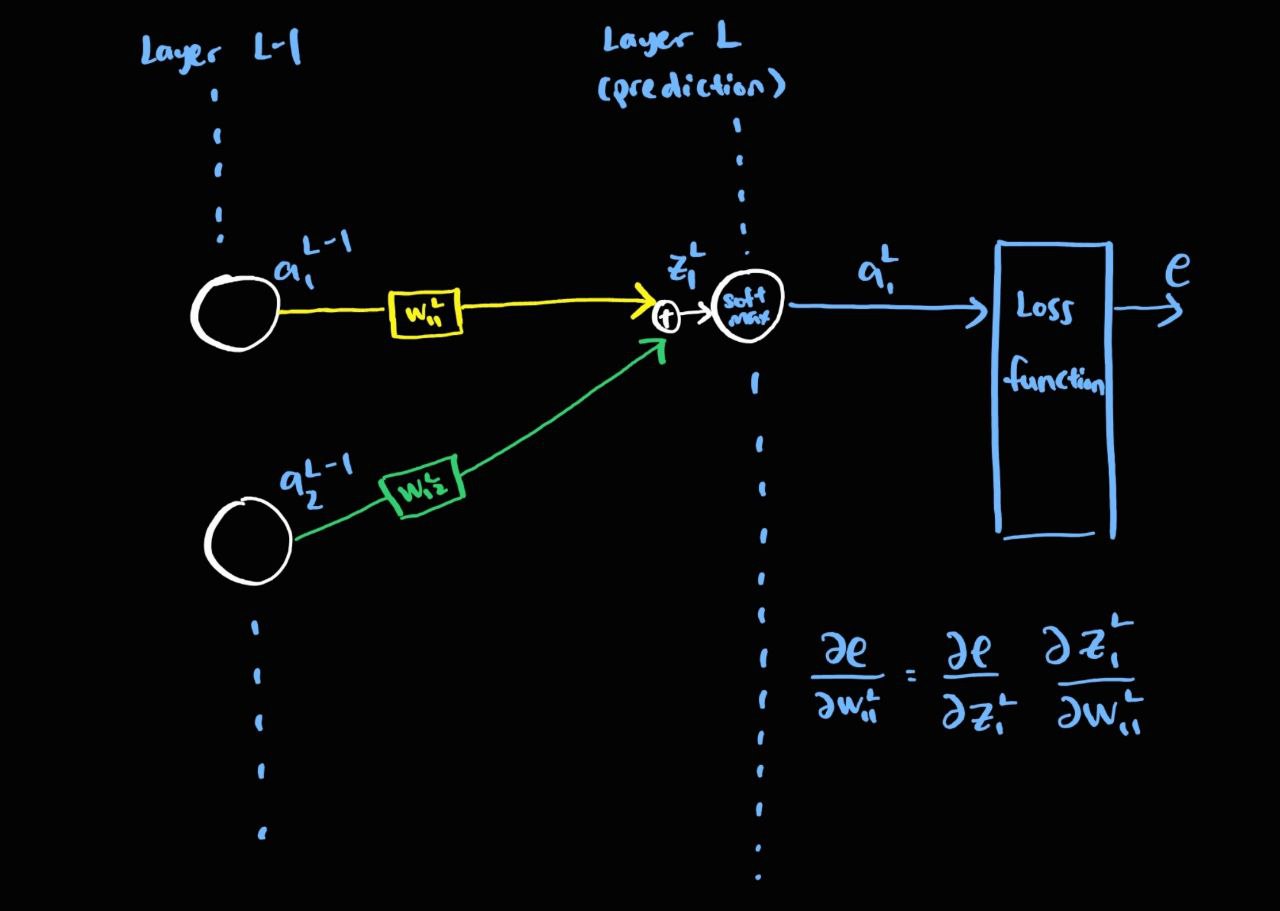 Layer L-1
Layer L
(prediction)
a₁ᴸ⁻¹
w₁₁ᴸ
z₁ᴸ
+
soft
max
a₁ᴸ
Loss
function
e
a₂ᴸ⁻¹
w₁₂ᴸ
∂e/∂w₁₁ᴸ = ∂e/∂z₁ᴸ ∂z₁ᴸ/∂w₁₁ᴸ